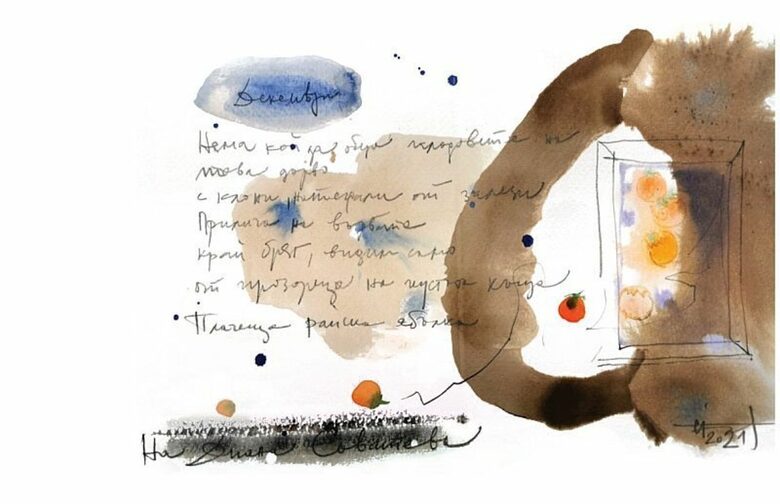 Декември
Няма кой да обере плодовете на
това дърво
с клони, натежали от залези
Прилича на върбата
край брят, видим само
от прозореца на пустата къща
Плачеща райска ябълка
На Диана
2021